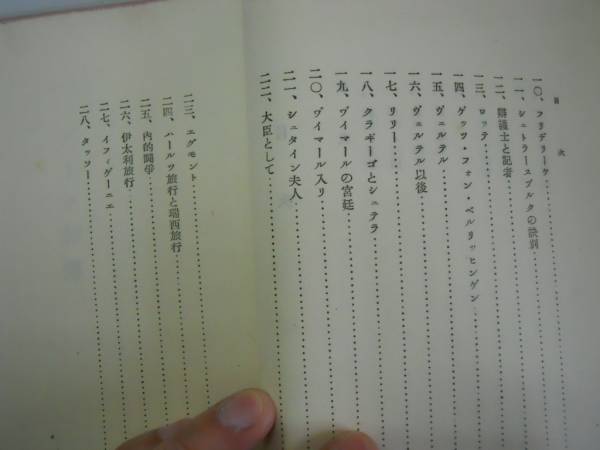 目次
一〇、フリデリーケ
一一、シュトラースブルクの訣別
一二、辯護士と記者
一三、ロッテ
一四、ゲッツ・フォン・ベルリッヒンゲン
一五、ヴェルテル
一六、ヴェルテル以後
一七、リリー
一八、クラギーゴとシュテラ
一九、ヴイマールの宮廷
二〇、ヴイマール入り
二一、シュタイン夫人
二二、大臣として
二三、エグモント
二四、ハールツ旅行と瑞西旅行
二五、内的闘爭
二六、伊太利旅行
二七、イフィゲーニエ
二八、タッソー